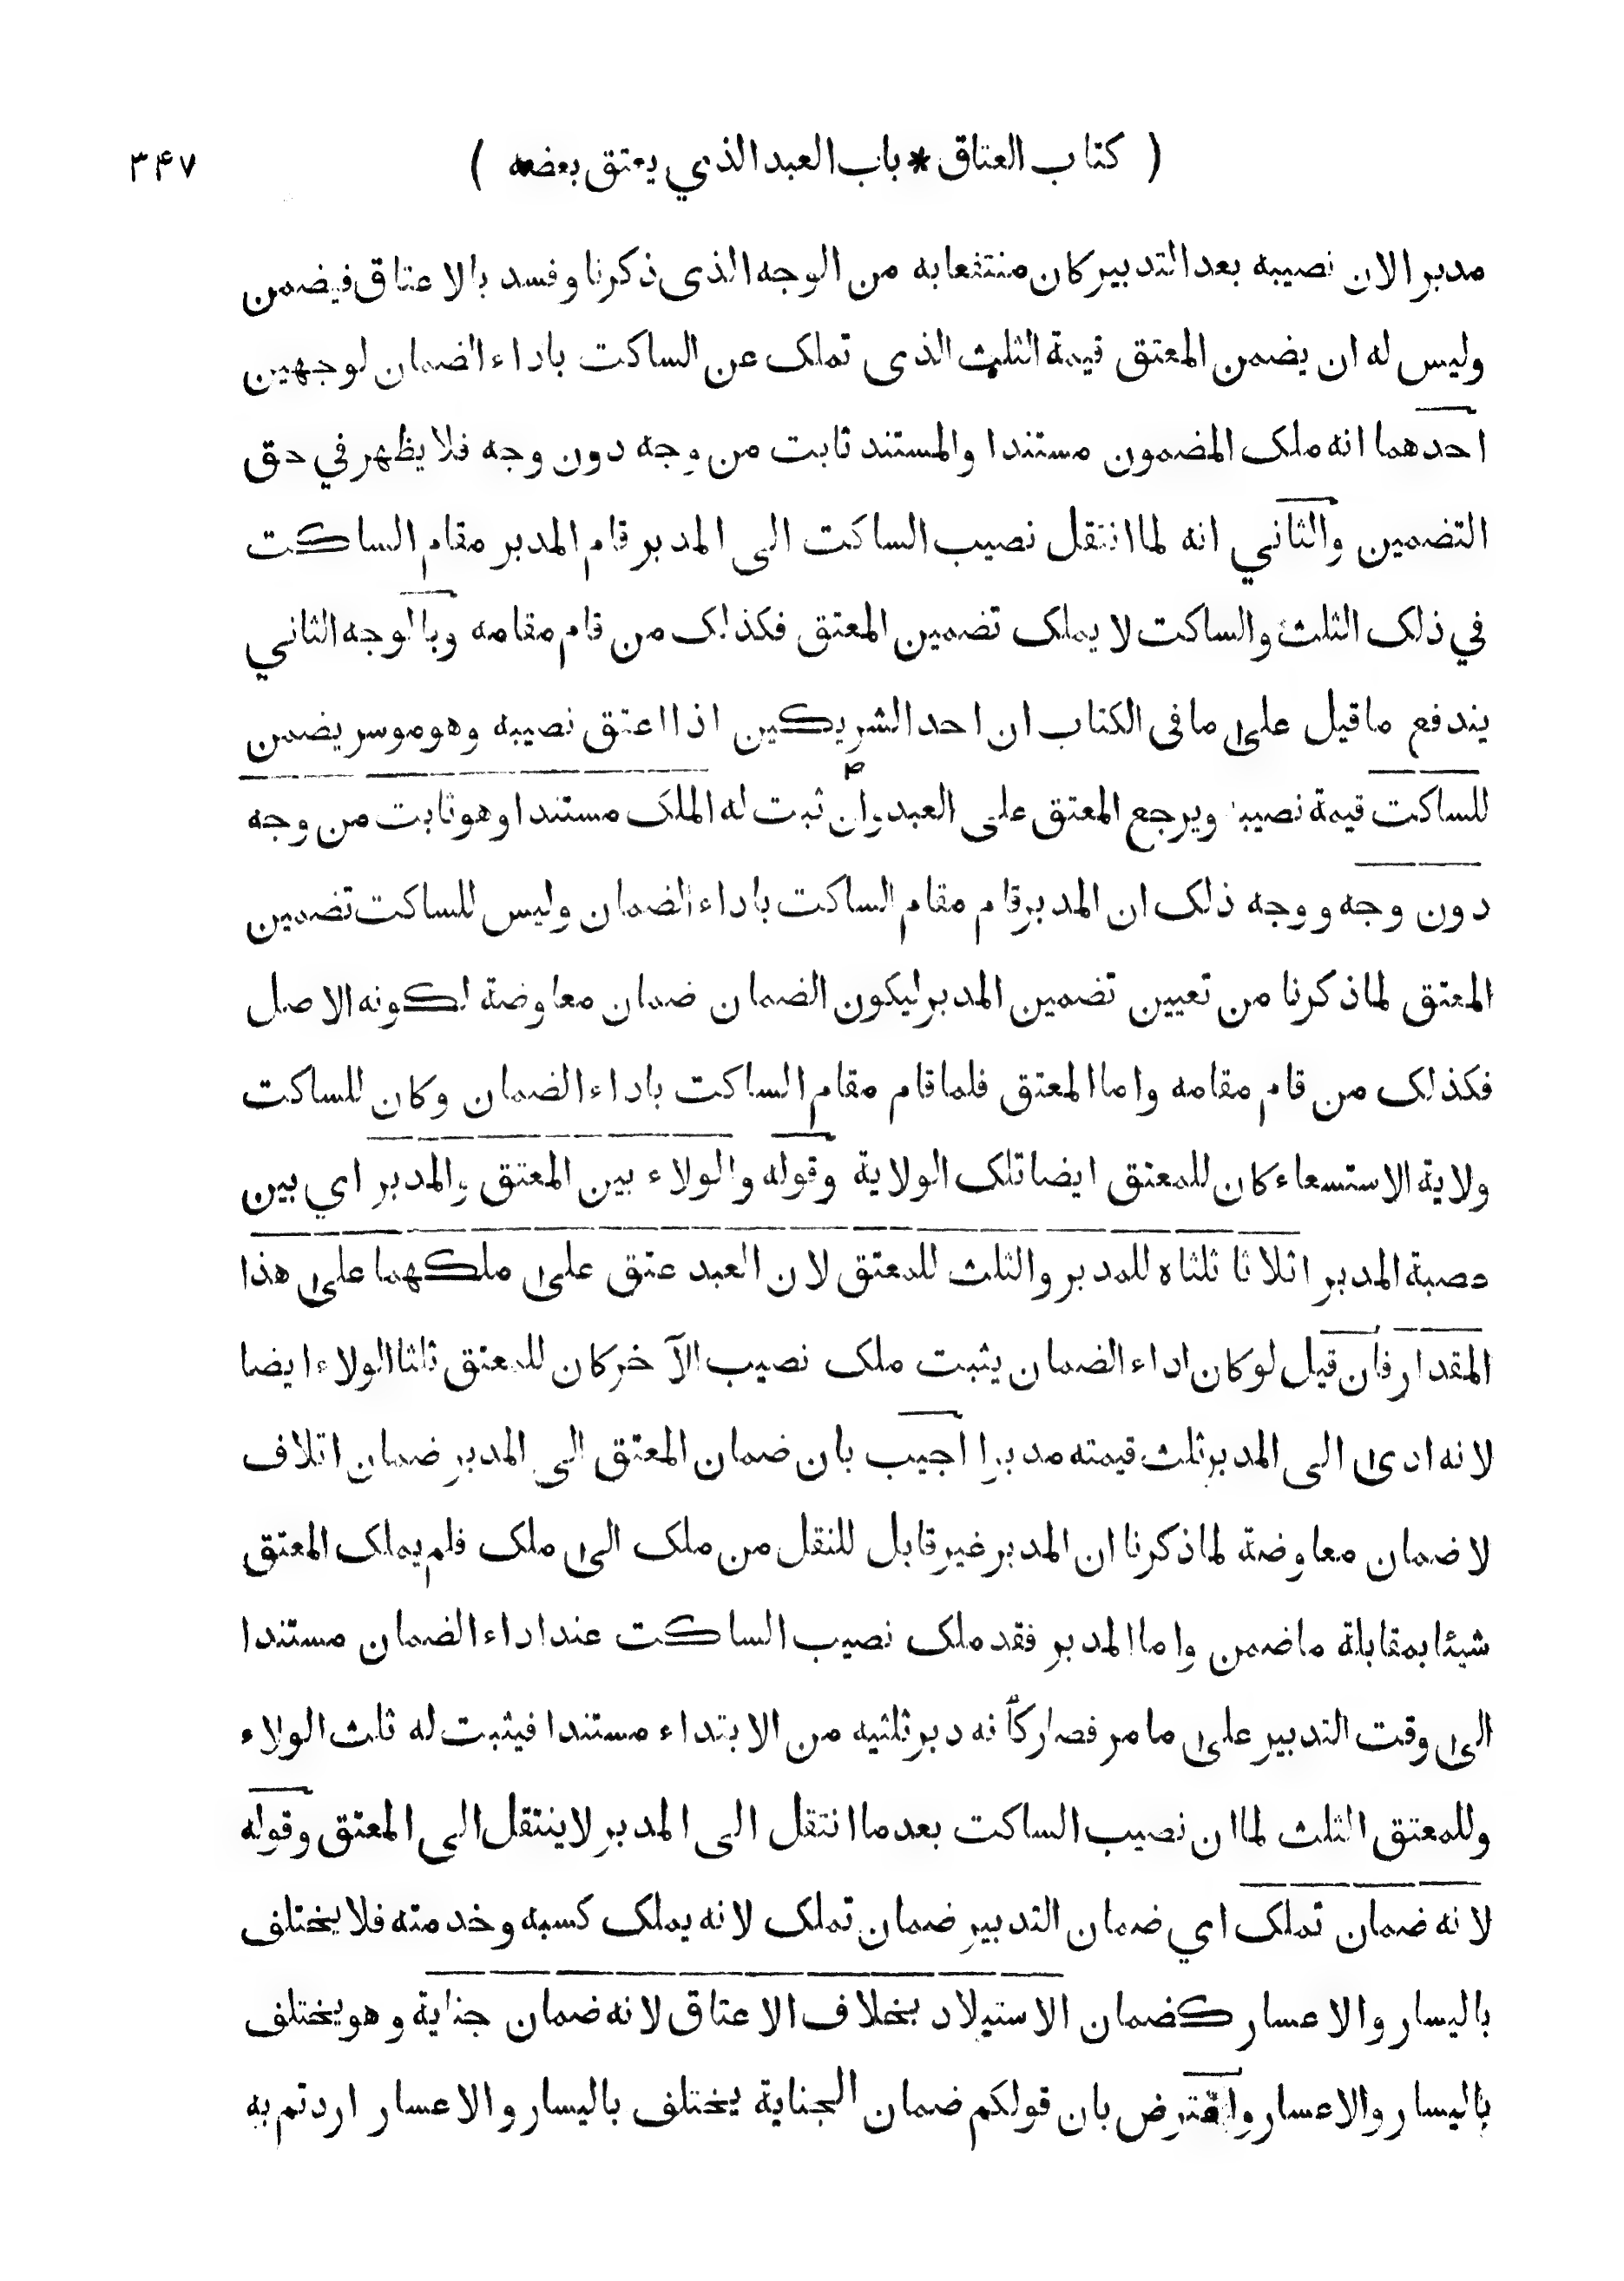 ( كتاب العتاق * باب العبد الذي يعتق بعضه ) ٣۴٧
مدبرا لان نصيبه بعد التدبير كان منتفعا به من الوجه الذى ذكرنا وفسد بالاعتاق فيضمن
وليس له ان يضمن المعتق قيمة الثلث الذى تملك عن الساكت باداء الضمان لوجهين
احدهما انه ملك المضمون مستندا والمستند ثابت من وجه دون وجه فلا يظهر في حق
التضمين والثاني انه لما انتقل نصيب الساكت الى المدبر قام المدبر مقام الساكت
في ذلك الثلث والساكت لا يملك تضمين المعتق فكذلك من قام مقامه وبالوجه الثاني
يندفع ما قيل على ما في الكتاب ان احد الشريكين اذا اعتق نصيبه وهو موسر يضمن
للساكت قيمة نصيبه ويرجع المعتق على العبد وان ثبت له الملك مستندا وهو ثابت من وجه
دون وجه ووجه ذلك ان المدبر قام مقام الساكت باداء الضمان وليس للساكت تضمين
المعتق لما ذكرنا من تعيين تضمين المدبر ليكون الضمان ضمان معاوضة لكونه الاصل
فكذلك من قام مقامه واما المعتق فلما قام مقام الساكت باداء الضمان وكان للساكت
ولاية الاستسعاء كان للمعتق ايضا تلك الولاية وقوله والولاء بين المعتق والمدبر اي بين
عصبة المدبر اثلاثا ثلثاه للمدبر والثلث للمعتق لان العبد عتق على ملكهما على هذا
المقدار فان قيل لو كان اداء الضمان يثبت ملك نصيب الآخر كان للمعتق ثلثا الولاء ايضا
لانه ادى الى المدبر ثلث قيمته مدبرا اجيب بان ضمان المعتق الى المدبر ضمان اتلاف
لا ضمان معاوضة لما ذكرنا ان المدبر غير قابل للنقل من ملك الى ملك فلم يملك المعتق
شيئا بمقابلة ما ضمن واما المدبر فقد ملك نصيب الساكت عند اداء الضمان مستندا
الى وقت التدبير على ما مر فصار كأنه دبر ثلثيه من الابتداء مستندا فيثبت له ثلث الولاء
وللمعتق الثلث لما ان نصيب الساكت بعد ما انتقل الى المدبر لا ينتقل الى المعتق وقوله
لانه ضمان تملك اي ضمان التدبير ضمان تملك لانه يملك كسبه وخدمته فلا يختلف
باليسار والاعسار كضمان الاستيلاد بخلاف الاعتاق لانه ضمان جناية وهو يختلف
باليسار والاعسار واعترض بان قولكم ضمان الجناية يختلف باليسار والاعسار اردتم به